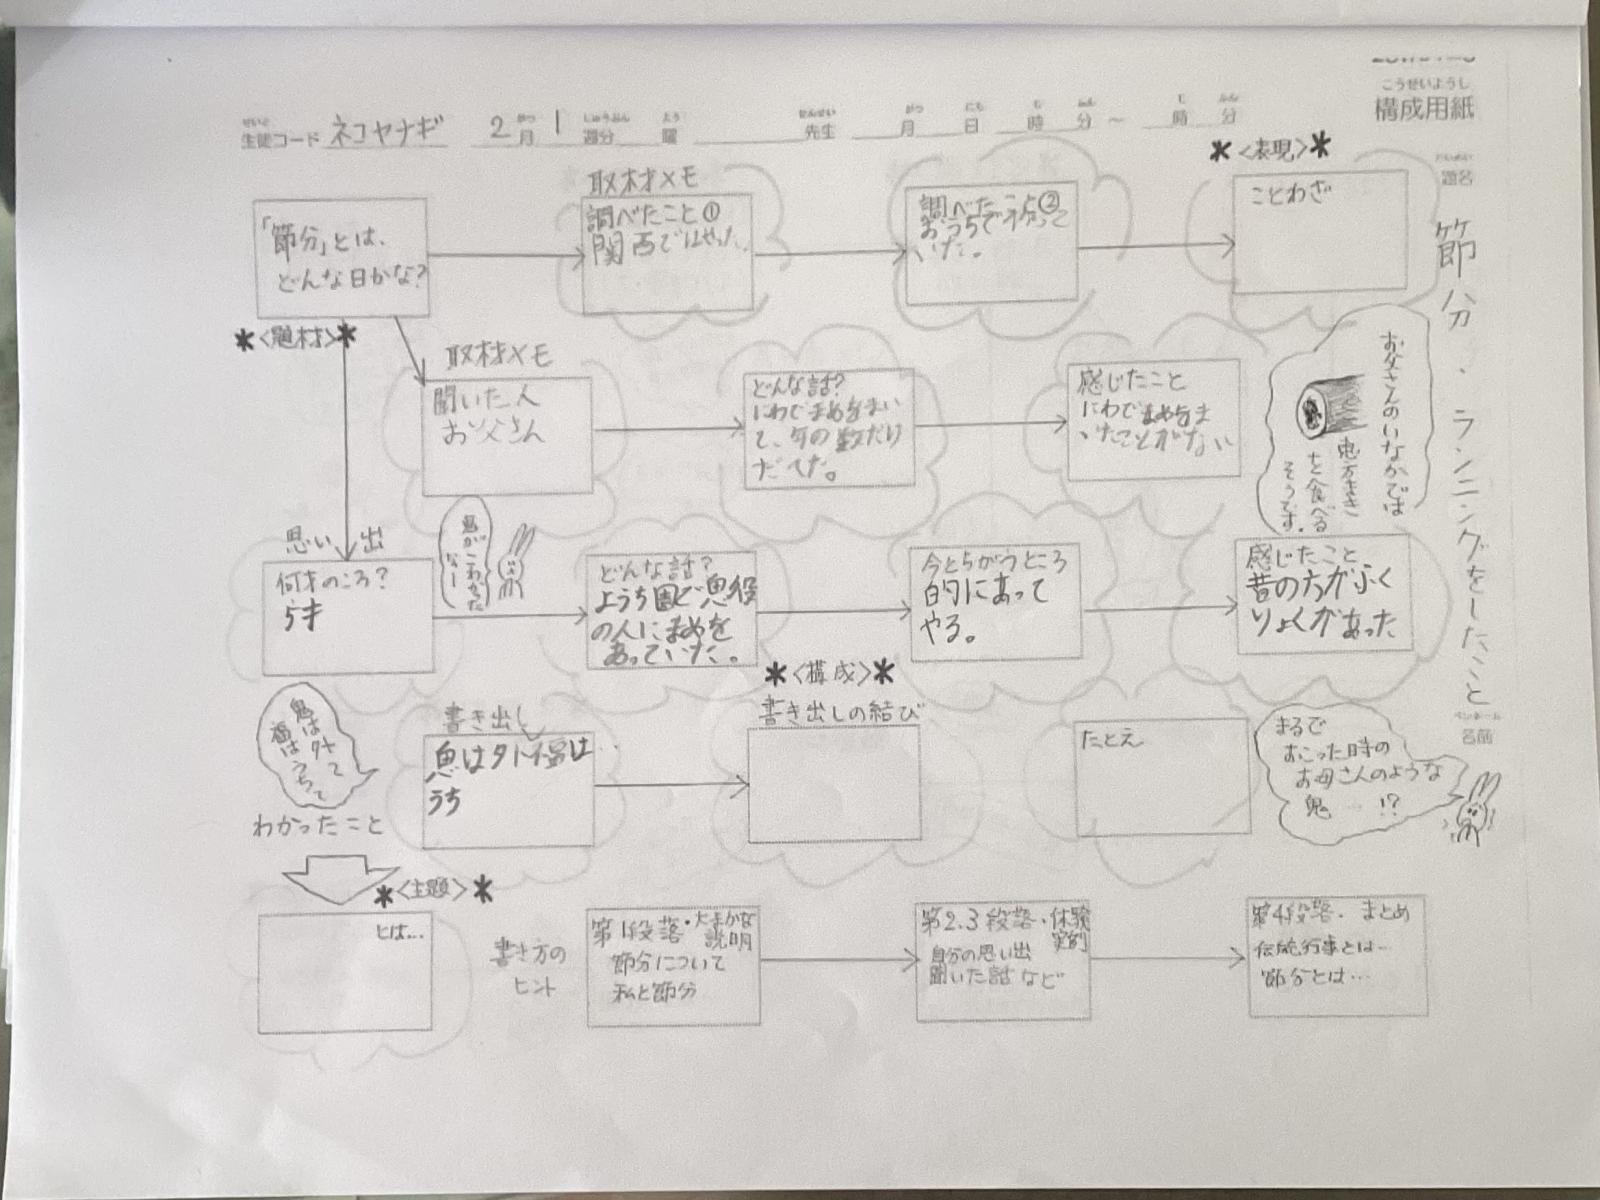 こうせいようし
構成用紙
せいと
生徒コード ネコヤナギ 2月 1週分 曜 先生 月 日 時 分 ~ 時 分
題名
節分・ランニングをしたこと
名前
「節分」とは、
どんな日かな?
*<題材>*
取材メモ
調べたこと①
関西ではやった
調べたこと②
おうちで
いた。
*<表現>*
ことわざ
取材メモ
聞いた人
お父さん
どんな話?
にわでまめをまい
て、年の数だけ
たべた。
感じたこと
にわでまめをま
いたことがない
お父さんのいなかでは
恵方まき
を食べる
そうです。
思い出
何才のころ?
5才
鬼が
こわかった
なー
どんな話?
ようち園で鬼役
の人にまめを
あっていた。
今とちがうところ
的にあって
やる。
感じたこと
昔の方がふく
りょくがあった
鬼は外って
福はうちって
書き出し
鬼は外福は…
うち
*<構成>*
書き出しの結び
たとえ
まるで
おこった時の
お母さんのような
鬼 !?
わかったこと
*<主題>*
とは…
書き方の
ヒント
第1段落・大まかな
説明
節分について
私と節分
第2.3段落・体験
実例
自分の思い出
聞いた話など
第4段落. まとめ
伝統行事とは…
節分とは…